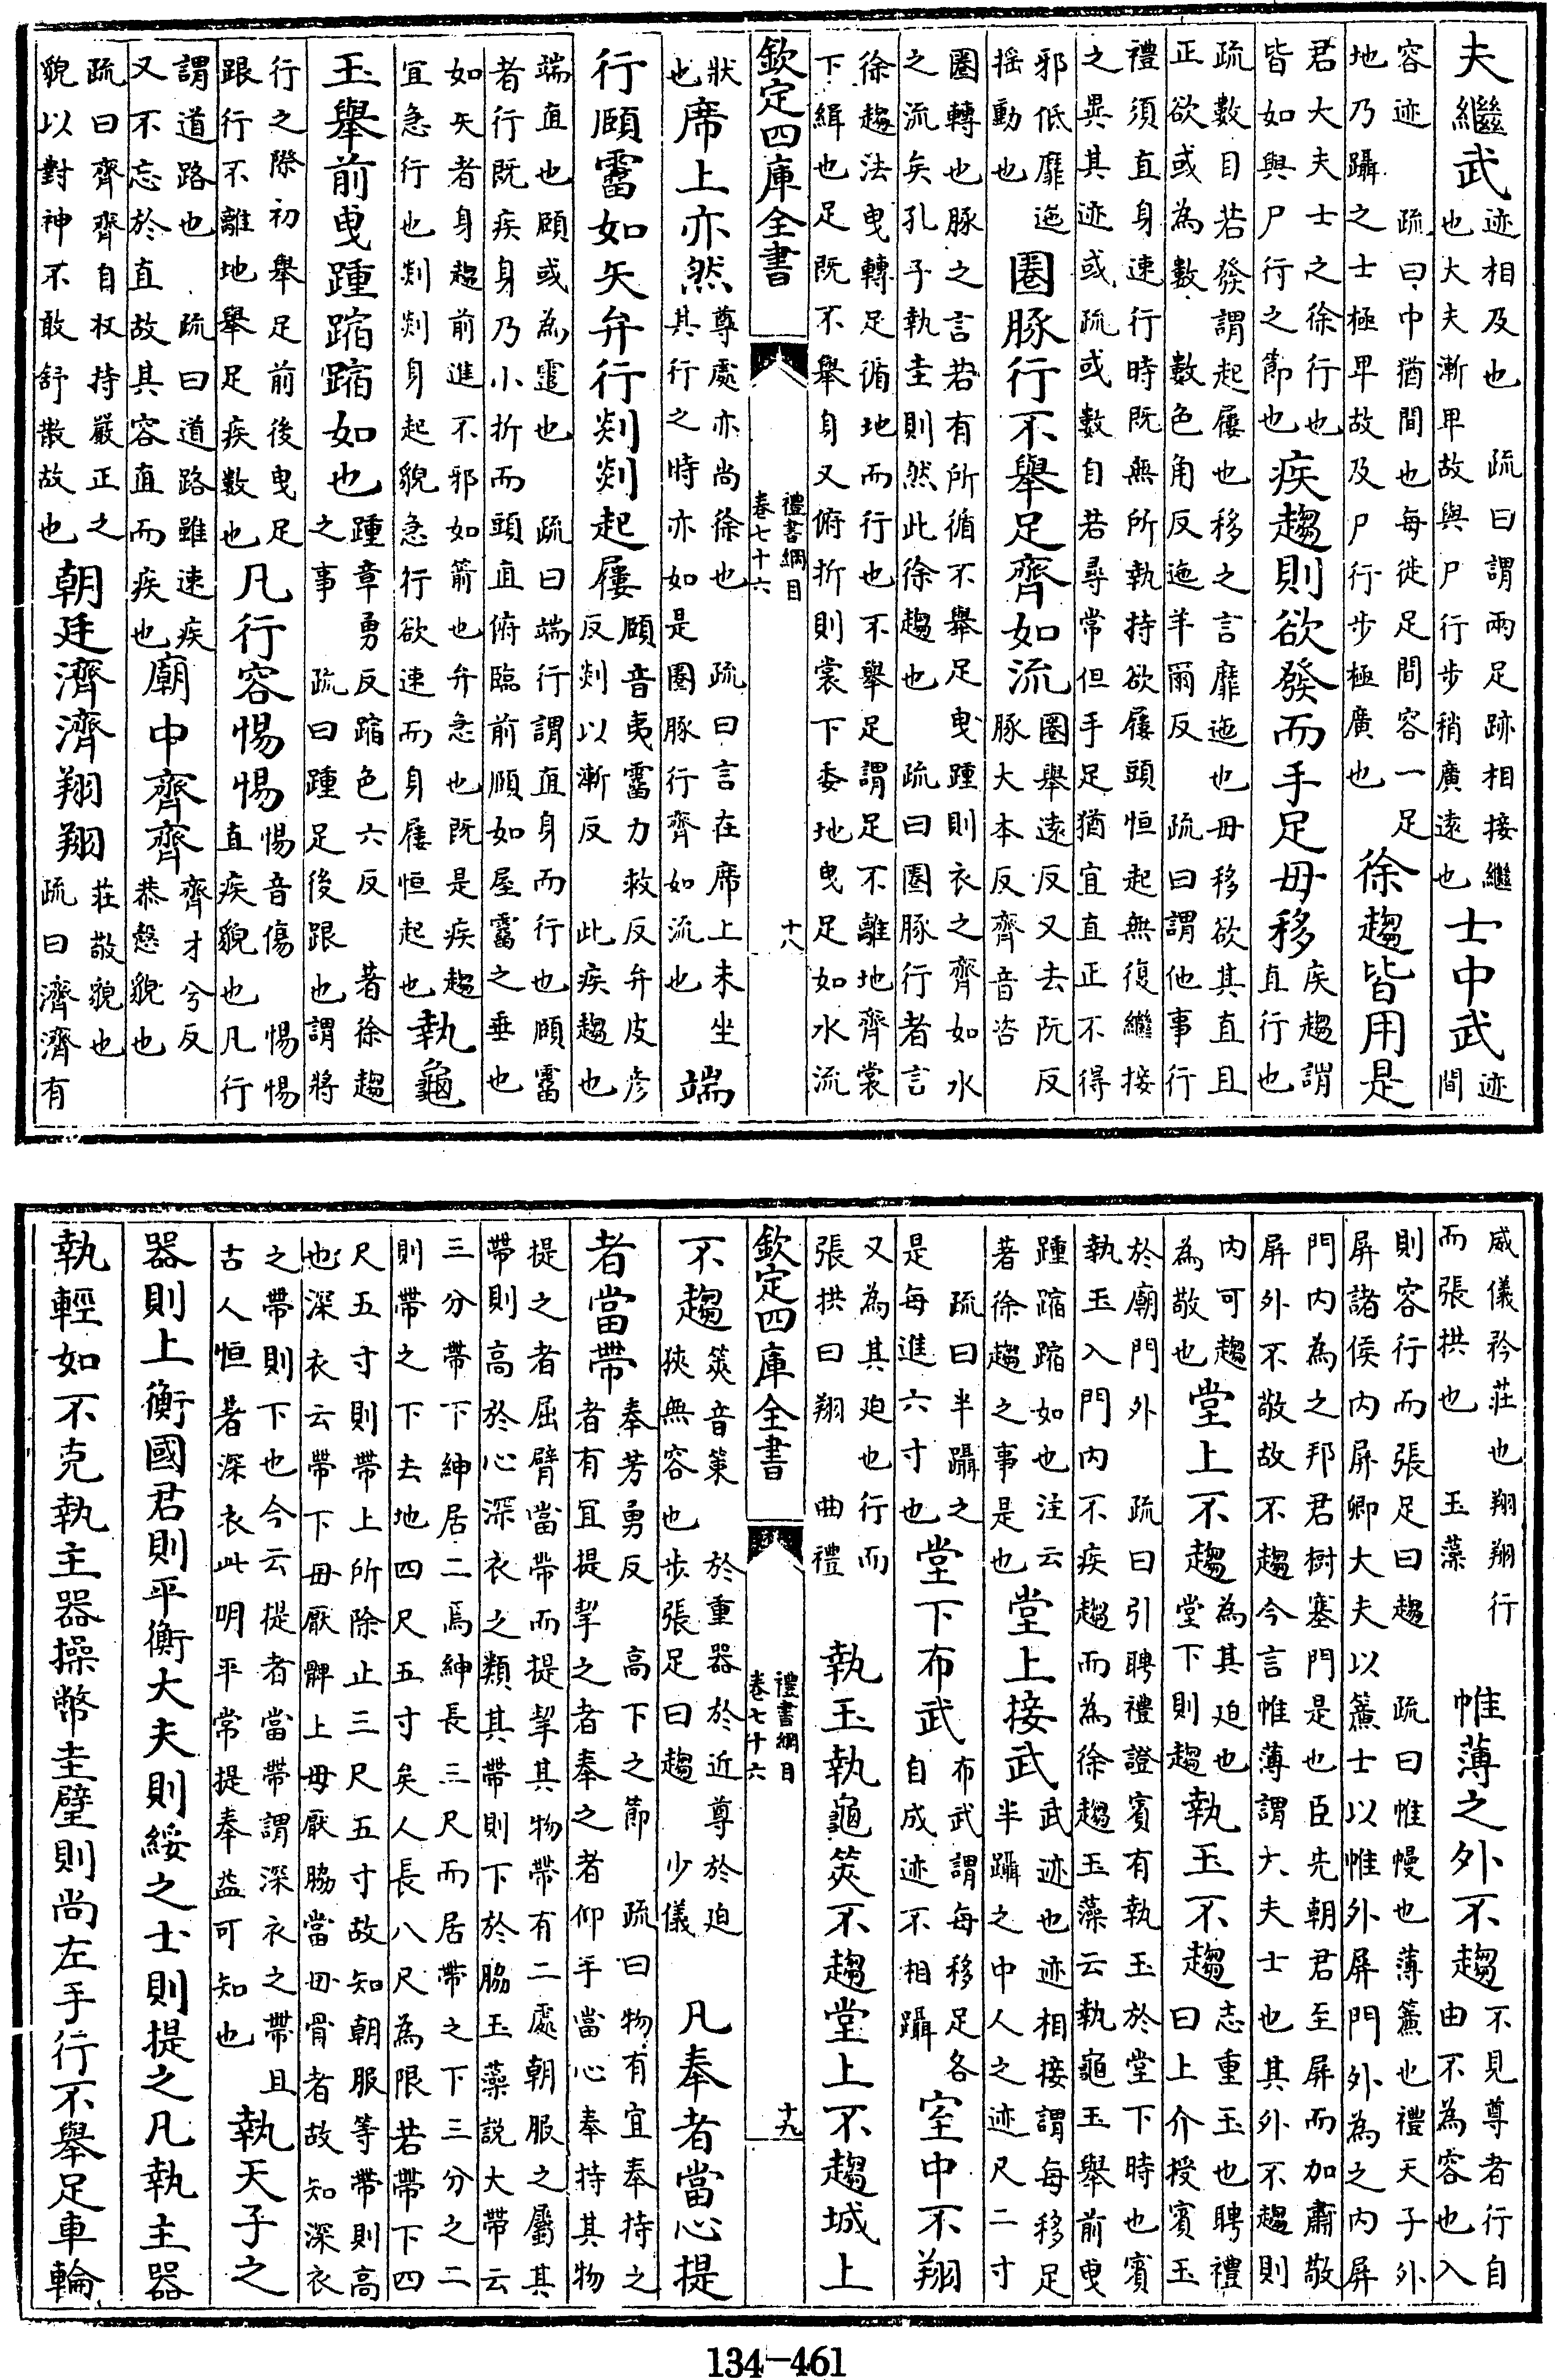 夫繼武迹相及也 疏曰謂兩足跡相接繼也大夫漸卑故與尸行步稍廣遠也士中武迹間
容迹 疏曰中猶間也每徙足間容一足地乃躡之士極卑故及尸行步極廣也徐趨皆用是
君大夫士之徐行也皆如與尸行之節也疾趨則欲發而手足毋移疾趨謂直行也
疏數目若發謂起屨也移之言靡迤也毋移欲其直且正欲或為數 數色角反迤羊爾反 疏曰謂他事行
禮須直身速行時既無所執持欲屨頭恒起無復繼接之異其迹或疏或數自若尋常但手足猶宜直正不得
邪低靡迤搖動也圈豚行不舉足齊如流圈舉遠反又去阮反豚大本反齊音咨
圈轉也豚之言若有所循不舉足曳踵則衣之齊如水之流矣孔子執圭則然此徐趨也 疏曰圈豚行者言
徐趨法曳轉足循地而行也不舉足謂足不離地齊裳下緝也足既不舉身又俯折則裳下委地曳足如水流
欽定四庫全書 禮書綱目 卷七十六 十八
狀也席上亦然尊處亦尚徐也 疏曰言在席上未坐其行之時亦如是圈豚行齊如流也端
行頤霤如矢弁行剡剡起屨頤音夷霤力救反弁皮彥反剡以漸反 此疾趨也
端直也頤或為霆也 疏曰端行謂直身而行也頤霤者行既疾身乃小折而頭直俯臨前頤如屋霤之垂也
如矢者身趨前進不邪如箭也弁急也既是疾趨宜急行也剡剡身起貌急行欲速而身屨恒起也執龜
玉舉前曳踵蹜蹜如也踵章勇反蹜色六反 著徐趨之事 疏曰踵足後跟也謂將
行之際初舉足前後曳足跟行不離地舉足疾數也凡行容惕惕惕音傷 惕惕直疾貌也凡行
謂道路也 疏曰道路雖速疾又不忘於直故其容直而疾也廟中齊齊齊才兮反恭慤貌也
疏曰齊齊自收持嚴正之貌以對神不敢舒散故也朝廷濟濟翔翔莊敬貌也疏曰濟濟有
威儀矜莊也翔翔行而張拱也 玉藻 帷薄之外不趨不見尊者行自由不為容也入
則容行而張足曰趨 疏曰帷幔也薄簾也禮天子外屏諸侯内屏卿大夫以簾士以帷外屏門外為之内屏
門内為之邦君樹塞門是也臣先朝君至屏而加肅敬屏外不敬故不趨今言帷薄謂大夫士也其外不趨則
内可趨為敬也堂上不趨為其迫也堂下則趨執玉不趨志重玉也聘禮曰上介授賓玉
於廟門外 疏曰引聘禮證賓有執玉於堂下時也賓執玉入門内不疾趨而為徐趨玉藻云執龜玉舉前曳
踵蹜蹜如也注云著徐趨之事是也堂上接武武迹也迹相接謂每移足半躡之中人之迹尺二寸
疏曰半躡之是每進六寸也堂下布武布武謂每移足各自成迹不相躡室中不翔
又為其迫也行而張拱曰翔 曲禮 執玉執龜筴不趨堂上不趨城上
欽定四庫全書 禮書綱目 卷七十六 十九
不趨筴音策 於重器於近尊於迫狹無容也步張足曰趨 少儀 凡奉者當心提
者當帶奉芳勇反 高下之節 疏曰物有宜奉持之者有宜提挈之者奉之者仰手當心奉持其物
提之者屈臂當帶而提挈其物帶有二處朝服之屬其帶則高於心深衣之類其帶則下於脇玉藻說大帶云
三分帶下紳居二焉紳長三尺而居帶之下三分之二則帶之下去地四尺五寸矣人長八尺為限若帶下四
尺五寸則帶上所除止三尺五寸故知朝服等帶則高也深衣云帶下毋厭髀上毋厭脇當毋骨者故知深衣
之帶則下也今云提者當帶謂深衣之帶且古人恒著深衣此明平常提奉益可知也執天子之
器則上衡國君則平衡大夫則綏之士則提之凡執主器
執輕如不克執主器操幣圭璧則尚左手行不舉足車輪
134-461